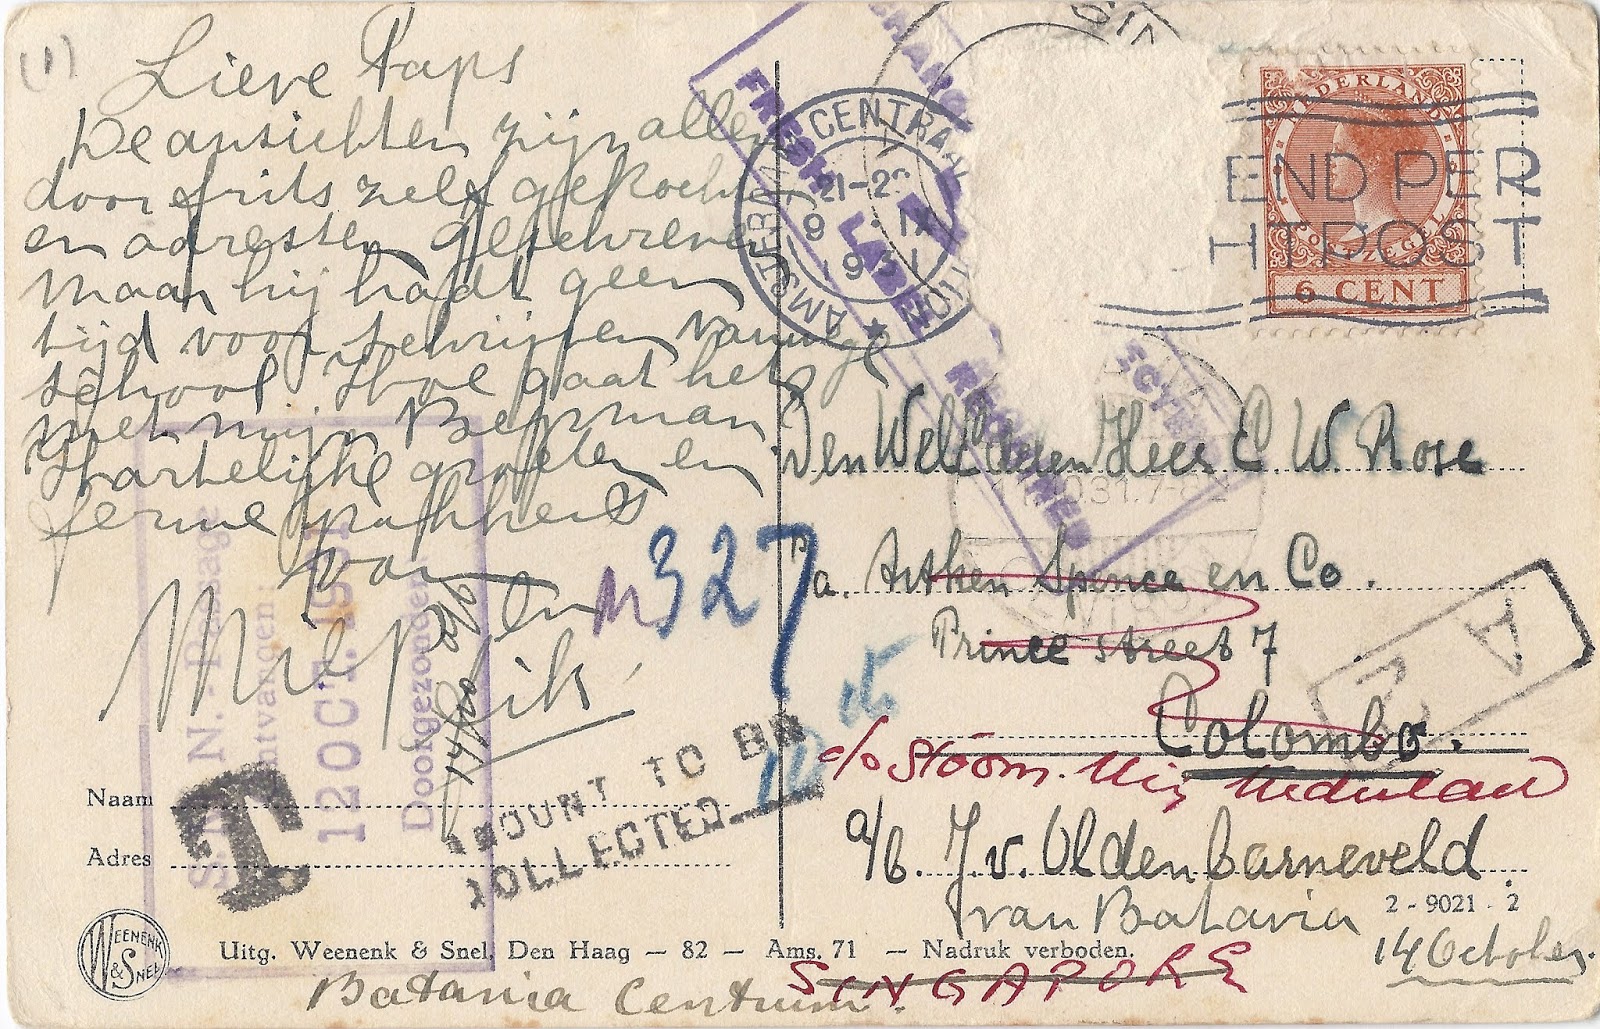 (1)
Lieve Paps
De ansichten zijn allen
door frits zelf gekocht
en adressen geschreven
maar hij hadt geen
tijd voor schrijven vanwege
school Hoe gaat het
met mijn Beerman
Hartelijke groeten en
ferme pakkerds
van
Miep en
Fik
N 327
Naam
Adres
T
AMOUNT TO BE
COLLECTED
S.M.N. - Passage
Ontvangen:
12 OCT. 1931
Doorgezonden
14/10
WEENENK
& SNEL
Uitg. Weenenk & Snel, Den Haag — 82 — Ams. 71 — Nadruk verboden.
2 - 9021 - 2
AMSTERDAM CENTRAAL STATION
21-22
9 IX
1931
FRESH LABEL
REQUIRED
NEDERLAND
POSTZEGEL
6 CENT
END PER
HTPOST
Den WelEd. den Heer E. W. Rose
p/a. Aitken Spence en Co.
Prince street 7
Colombo.
A
R
c/o Stoom. Mij Nederland
a/b. J. v. Oldenbarneveld
van Batavia
14 October.
SINGAPORE
Batavia Centrum.